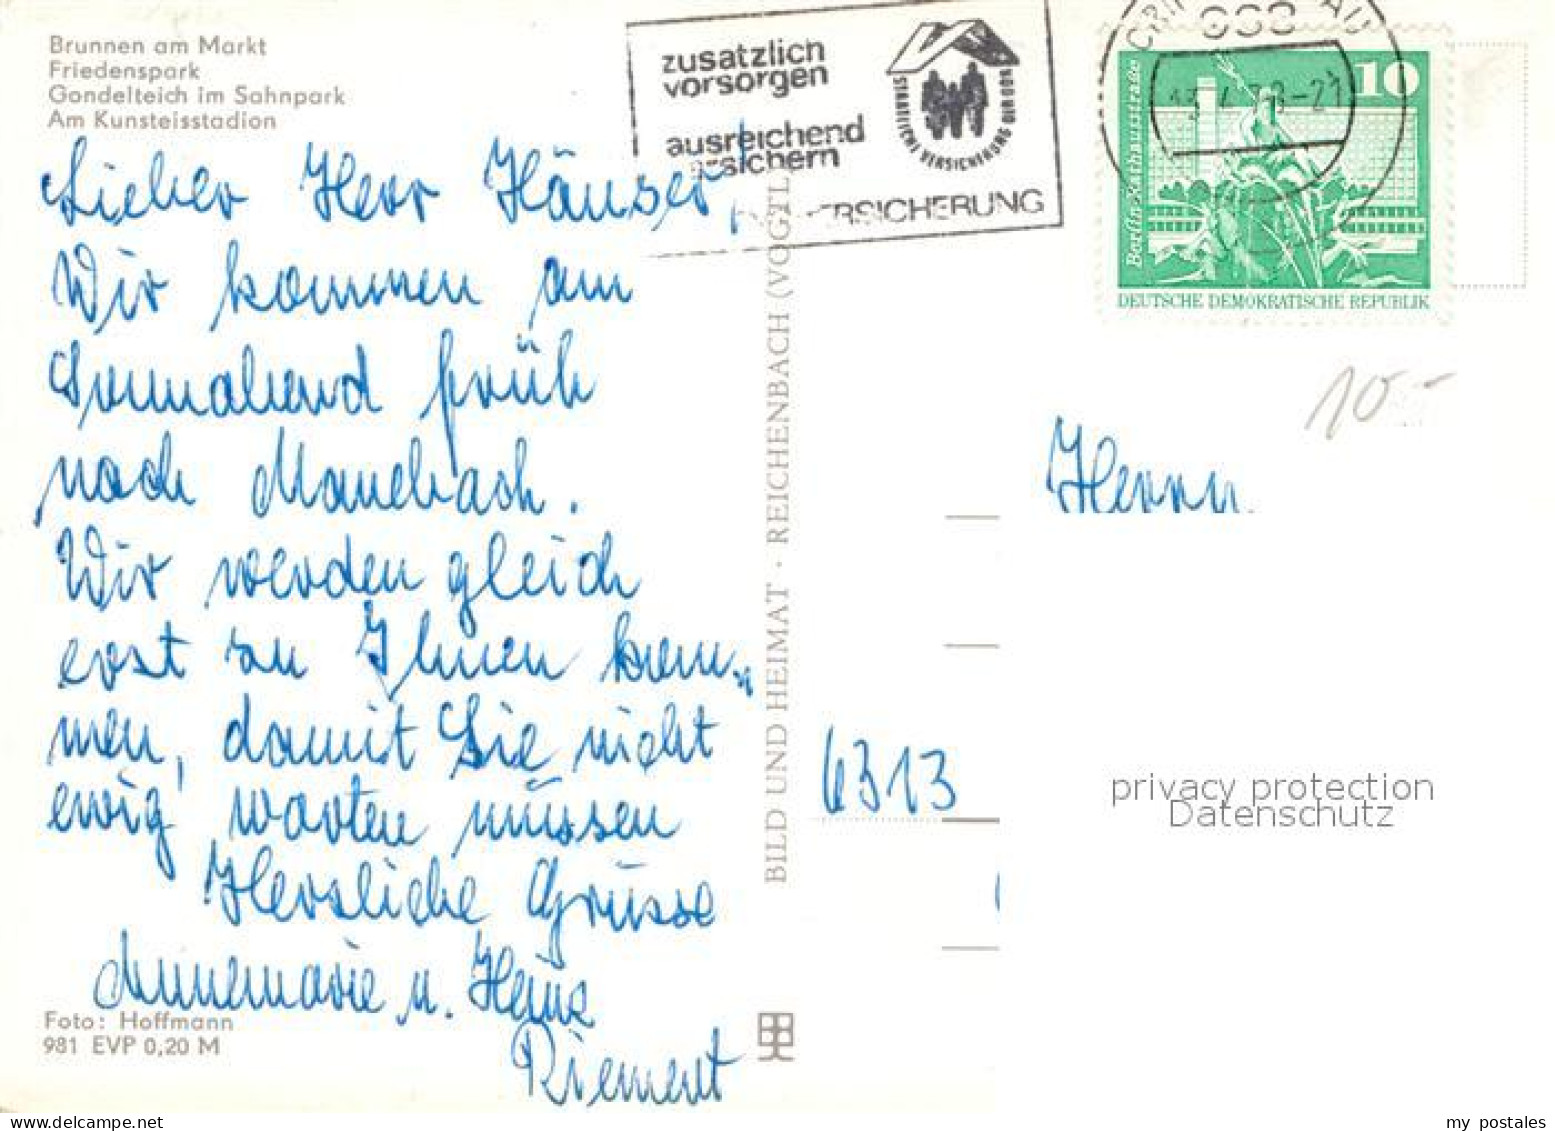 Brunnen am Markt
Friedenspark
Gondelteich im Sahnpark
Am Kunsteisstadion
Lieber Herr Häuser,
Wir kommen am
Sonnabend früh
nach Manebach.
Wir werden gleich
erst zu Ihnen kom-
men, damit Sie nicht
ewig warten müssen
Herzliche Grüsse
Annemarie u. Heinz
Riement
Foto: Hoffmann
981 EVP 0,20 M
BILD UND HEIMAT · REICHENBACH (VOGTL
zusätzlich
vorsorgen
ausreichend
STAATLICHE VERSICHERUNG DER DDR
ERSICHERUNG
10
Berlin-Rathausstraße
DEUTSCHE DEMOKRATISCHE REPUBLIK
10.-
Herrn
6313
privacy protection
Datenschutz
my postales
delcampe.net